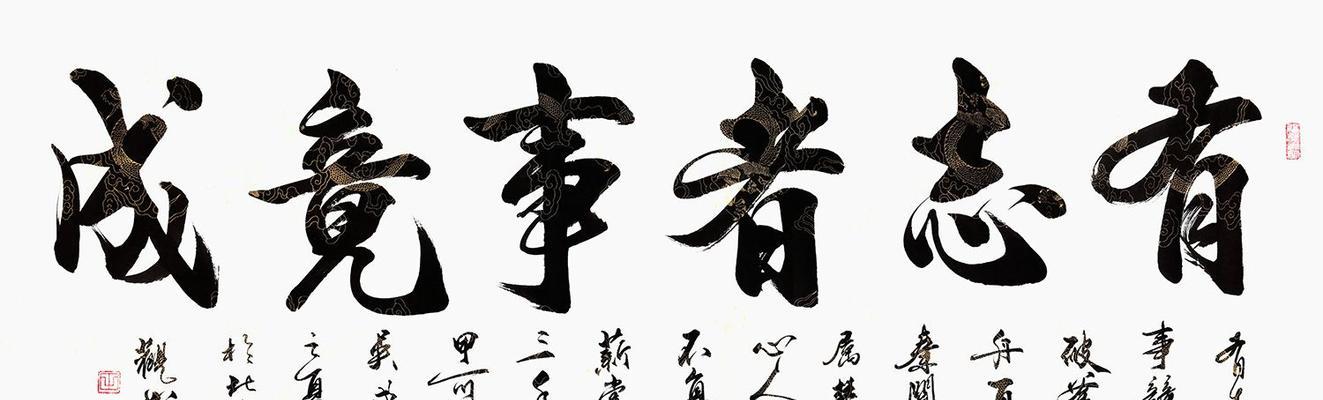 有志者事竟成
有
事竟
破釜
舟百
秦關
属楚
心人
不負
薪嘗
三千
甲可
吴
之夏
於北
觀